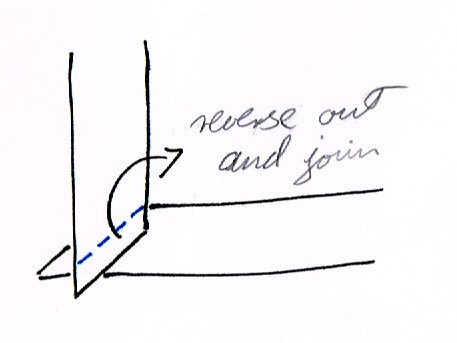 reverse out
and join